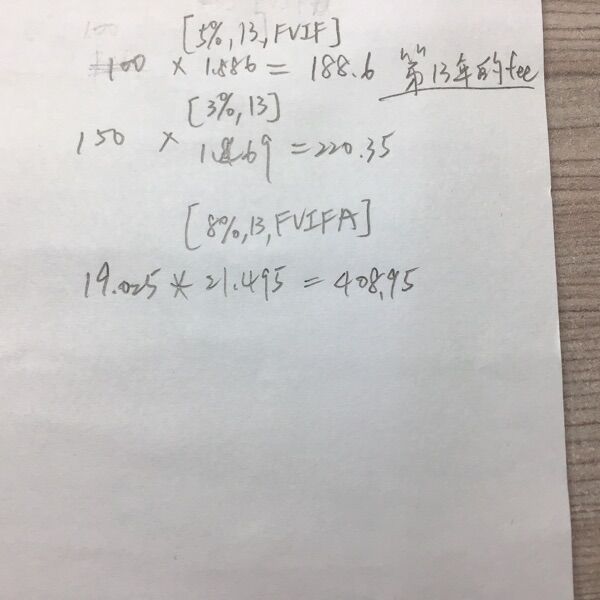 [5%, 13, FVIF]
100 × 1.886 = 188.6 "第13年的fee
[3%, 13]
150 × 1.469 = 220.35
[8%, 13, FVIFA]
19.025 * 21.495 = 408.95